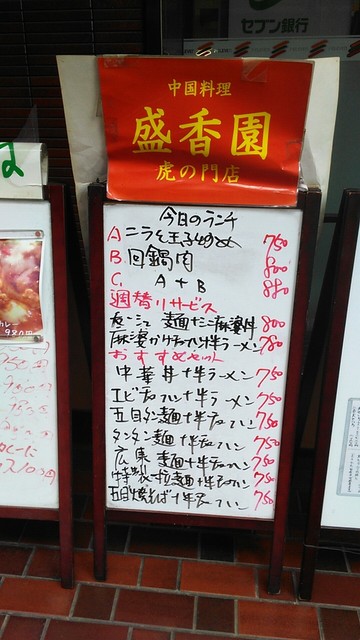 セブン銀行
中国料理
盛香園
虎の門店
今日のランチ
A ニラと玉子炒め 750
B. 回鍋肉 800
C. A+B 880
週替りサービス
麺 800
麻婆かけチャーハン+半ラーメン 780
おすすめセット
中華丼+半ラーメン 750
エビチャーハン+半ラーメン 750
五目タン麺+半チャーハン 750
タンタン麺+半チャーハン 750
広東麺+半チャーハン 750
特製 麺+半チャーハン 750
五目焼そば+半チャーハン 750
カレー
980円